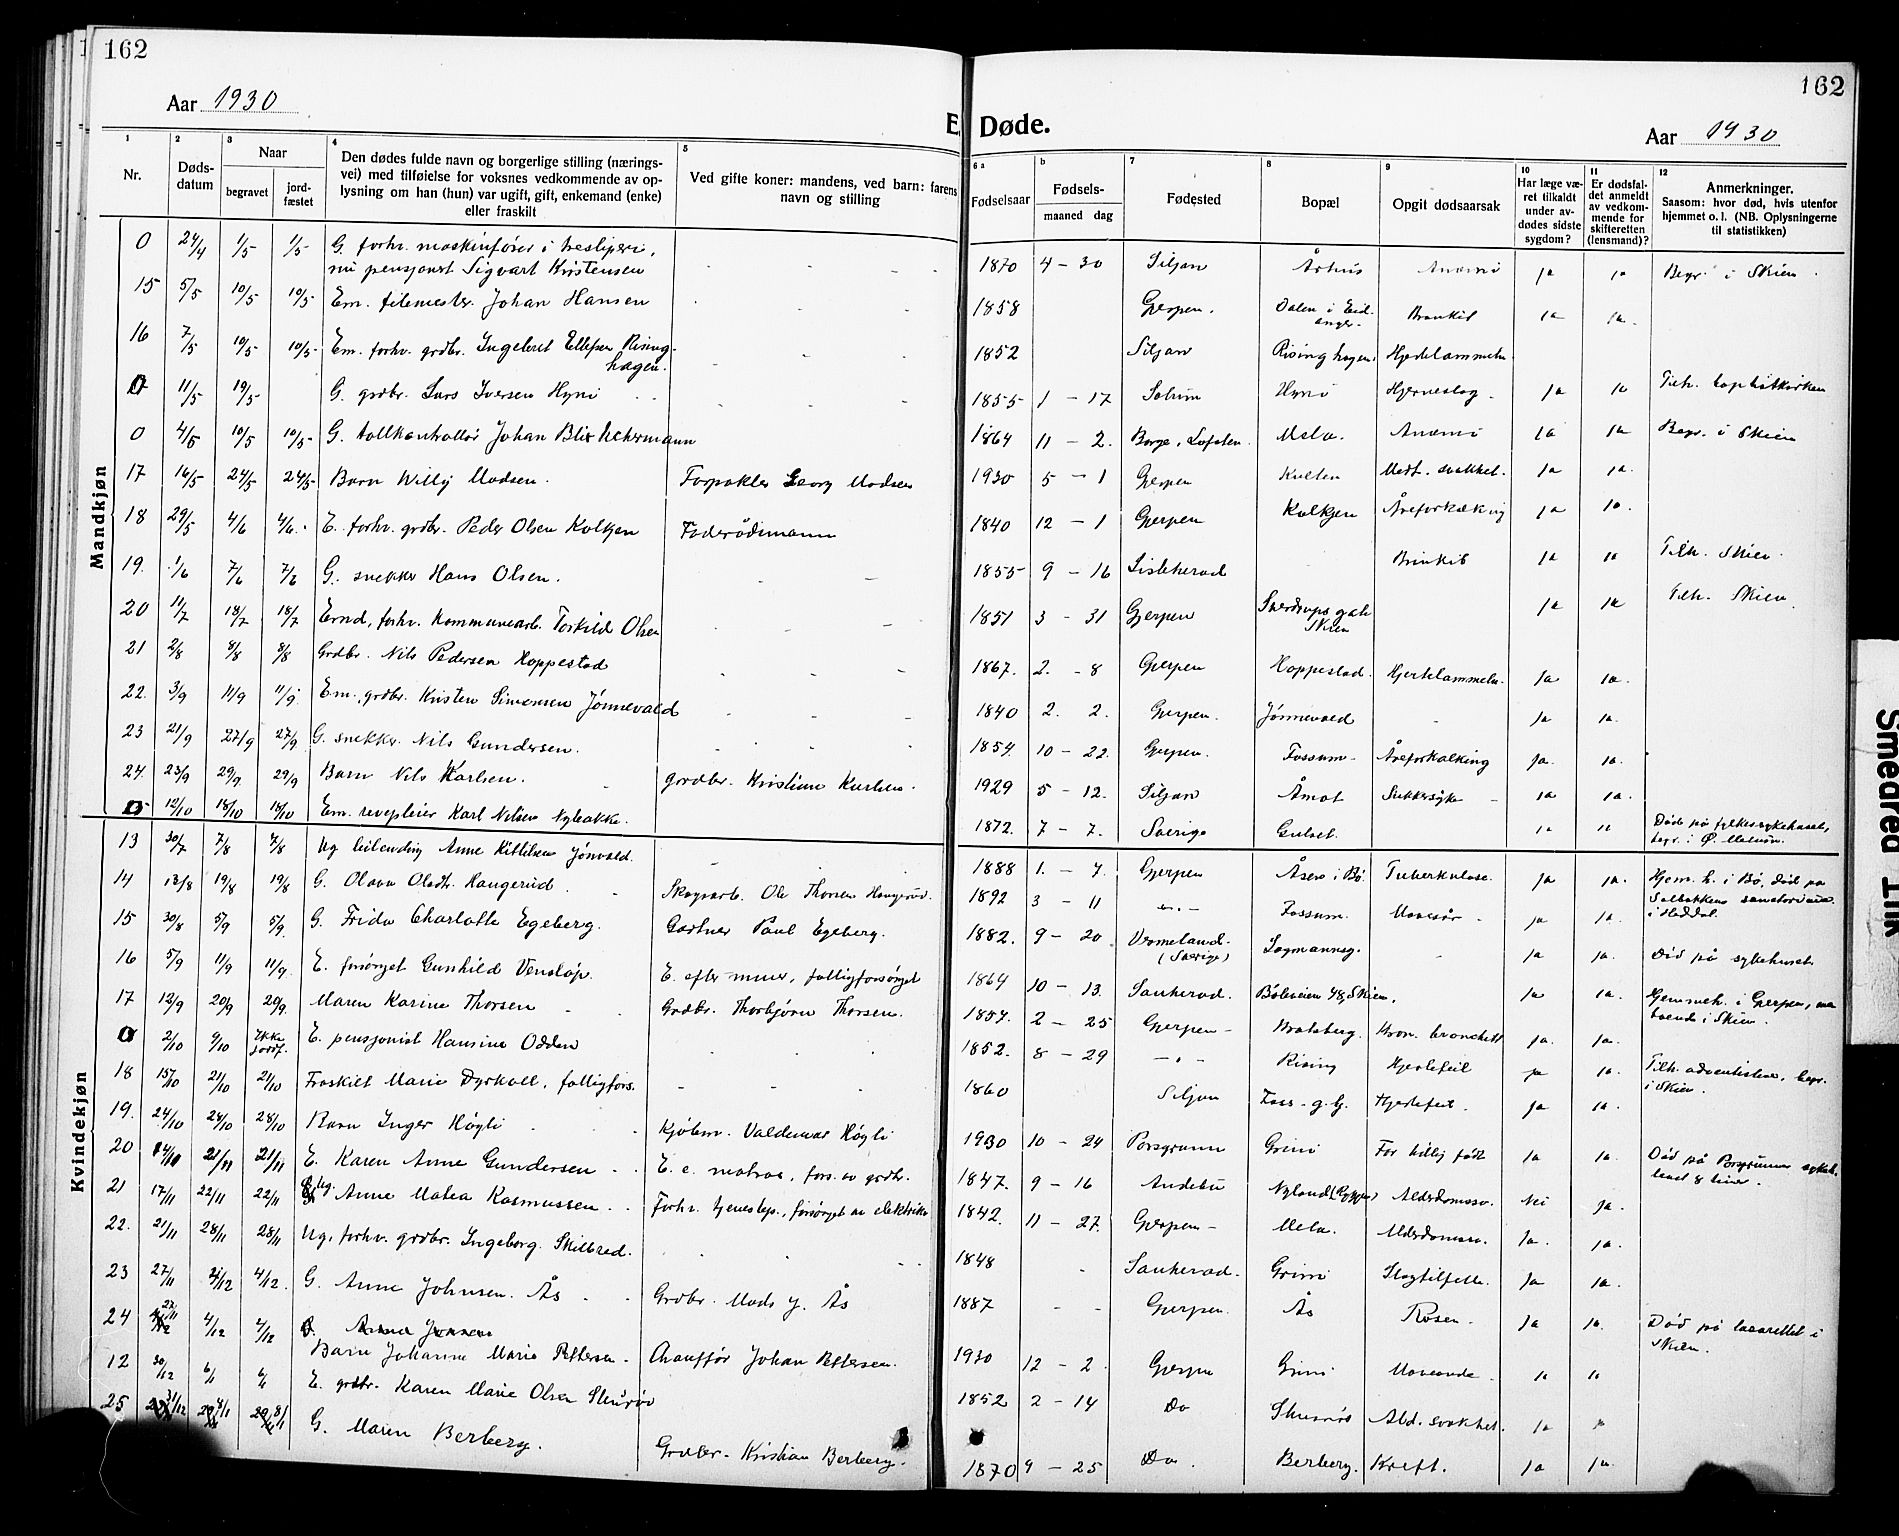 162
162
Aar 1930
E. Døde.
Aar 1930
1 Nr.
2 Dødsdatum
3 Naar
begravet
jordfæstet
4 Den dødes fulde navn og borgerlige stilling (næringsvei) med tilføielse for voksnes vedkommende av oplysning om han (hun) var ugift, gift, enkemand (enke) eller fraskilt
5 Ved gifte koner: mandens, ved barn: farens navn og stilling
6 a Fødselsaar
b Fødsels-
maaned dag
7 Fødested
8 Bopæl
9 Opgit dødsaarsak
10 Har læge været tilkaldt under avdødes sidste sygdom?
11 Er dødsfaldet anmeldt av vedkommende for skifteretten (lensmand)?
12 Anmerkninger.
Saasom: hvor død, hvis utenfor hjemmet o. l. (NB. Oplysningerne til statistikken)
Mandkjøn
0 24/4 1/5 1/5 G. forhv. maskinfører i tresliperi,
nu pensjonist Sigvart Kristensen 1870 4 - 30 Siljan Århus Anæmi ja ja Begr. i Skien
15 5/5 10/5 10/5 Em. Johan Hansen 1858 Gjerpen. Dalen i Eidanger Bronkit ja ja.
16 7/5 10/5 10/5 Em. forhv. grdbr. Ingebret Ellefsen Rising-
hagen. 1852 Siljan Risinghagen Hjertelammelse
0 11/5 19/5 G. grdbr. Lars Iversen Hyni 1855 1 - 17 Solum Hyni Hjerneslag ja ja
0 4/5 10/5 10/5 G. tollkontrollør Johan Blix 1864 11 - 2. Borge, Lofoten Mela. Anæmi ja ja Begr. i Skien
17 16/5 24/5 24/5 Barn Willy Madsen. Forpakter Georg Madsen 1930 5 - 1 Gjerpen Medf. svakhet. ja ja.
18 29/5 4/6 4/6. E. forhv. grdbr. Peder Olsen Kolkjen Føderådsmann 1840 12 - 1 Gjerpen Kolkjen Åreforkalkning ja ja.
19. 1/6 7/6 7/6 G. snekker Hans Olsen. 1855 9 - 16 Lisleherad Bronkit ja ja Tilh. Skien.
20 11/7 18/7 18/7 forhv. Kommunearb. Torkild Olsen 1851 3 - 31 Gjerpen Sverdrups gate
Skien ja ja Tilh. Skien
21 2/8 8/8 8/8 Grdbr. Nils Pedersen Hoppestad 1867. 2. - 8 Gjerpen Hoppestad. Hjertelammelse ja ja.
22. 3/9 11/9 11/9 Em. grdbr. Kristen Simonsen Jønnevald 1840 2. 2. Gjerpen. Jønnevald - ja ja.
23 21/9 27/9 27/9 G. snekker. Nils Gundersen. 1854. 10 - 22. Gjerpen. Fossum. Åreforkalkning ja. ja.
24. 23/9 29/9. 29/9 Barn Nils Karlsen. grdbr. Kristian Karlsen. 1929 5 - 12. Siljan Åmot Sukkersyke ja ja.
0 12/10 18/10 18/10 Em. revepleier Karl Nilsen Nybakke. 1872. 7 - 7. Sverige Gulset. ja ja Død på fylkessykehuset,
Kvindekjøn
13 30/7 7/8 7/8 Ug Anne Kittilsen Jønvald. 1888 1. - 7. Gjerpen Åsen i Bø. Tuberkulose. ja ja. Hjem. h. i Bø. Død på
i Heddal.
14 13/8 19/8 19/8 G. Olava Haugerud. Skogsarb. Ole Thorsen Haugerud. 1892 3 - 11 - " - Fossum. ja ja.
15 30/8 5/9 5/9. G. Frida Charlotte Egeberg. Gartner Paul Egeberg. 1882. 9 - 20 Vermeland.
(Sverige) ja ja. Død på sykehuset.
16 5/9 11/9 11/9. E. forsørget Gunhild Venstøp. E. efter murer, fattigforsørget 1864 10 - 13. Sauherad. Bøleveien 48, Skien. ja ja. Hjemmeh. i Gjerpen, men
boende i Skien.
17 12/9 20/9 20/9. Maren Karine Thorsen Grdbr. Thorbjørn Thorsen. 1854. 2 - 25 Gjerpen - Bratsberg. Kron. bronchitt ja. ja.
0 2/10 9/10 Ikke
jordf. E. pensjonist Hansine Odden 1852. 8 - 29 - " - Rising Hjertefeil ja ja. Tilh. adventistene, begr.
i Skien.
18 15/10 21/10 21/10 Fraskilt Marie Dyrkoll, fattigfors. 1860 Siljan Foss g.G. Hjertefeil. ja ja.
19. 24/10 28/10 28/10 Barn Inger Høgli Kjøbm. Valdemar Høgli 1930 10 - 24 Porsgrunn Grini For tidlig født ja ja. Død på Porsgrunn sykeh.
20 14/11 21/11 21/11 E. Karen Anne Gundersen E. e. matros, fors. av grdbr. 1847. 9 - 16 Andebu Nyland Alderdomssv. Nei ja.
21 17/11 22/11 22/11 Ug. Anne Matea Rasmussen Forhv. tjenestep., forsørget av elektriker 1842. 11 - 27. Gjerpen - Mela. Alderdomssv. ja. ja.
22. 21/11 28/11 28/11 Ug. forhv. grdbr. Ingeborg Skilbred. 1848 - Sauherad. Grini Slagtilfelle. ja ja.
23 27/11 4/12 4/12. G. Anne Johnsen Ås Grdbr. Mads J. Ås 1887 - - Gjerpen. Ås Rosen ja ja. Død på lasarettet i
Skien.
24 27/11 4/12 4/12 Barn Johanne Marie Pettersen. Chauffør Johan Pettersen. 1930 12 - 2 Gjerpen Grini ja ja
12 30/12 6/1 6/1 E. grdbr. Karen Marie Olsen 1852 2 - 14 Do Ald. svakhet. ja ja
25 31/12 8/1 G. Maren Berberg. Grdbr. Kristian Berberg. 1870 9 - 25 Do. Berberg. Kreft. ja ja.
Smeared Ink